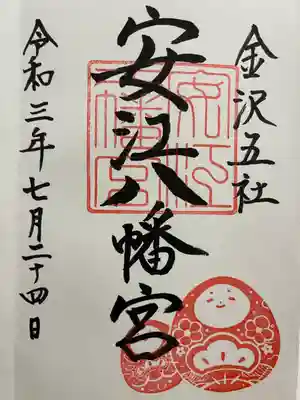 金沢五社
安江八幡宮
令和三年七月二十四日
安江
八幡宮